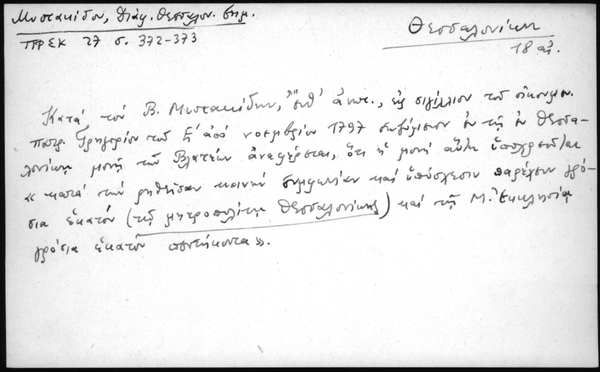 Μυστακίδου, Διάφ. Θεσσαλον. σημ.
ΓΠΡΣΚ 27 σ. 372-373
Θεσσαλονίκη
18 αἰ.
Κατὰ τὸν Β. Μυστακίδην, ἔνθ' ἀνωτ., εἰς σιγίλλιον τοῦ οἰκουμεν.
πατρ. Γρηγορίου τοῦ Ε' ἀπὸ νοεμβρίου 1797 σωζόμενον ἐν τῇ ἐν Θεσσα-
λονίκῃ μονῇ τῶν Βλατέων ἀναφέρεται, ὅτι ἡ μονὴ αὕτη ὑποχρεοῦται
« κατὰ τὴν ρηθεῖσαν κοινὴν συμφωνίαν καὶ ὑπόσχεσιν παρέχειν γρό-
σια ἑκατὸν (τῇ μητροπόλει Θεσσαλονίκης) καὶ τῇ Μ. Ἐκκλησίᾳ
γρόσια ἑκατὸν πεντήκοντα».